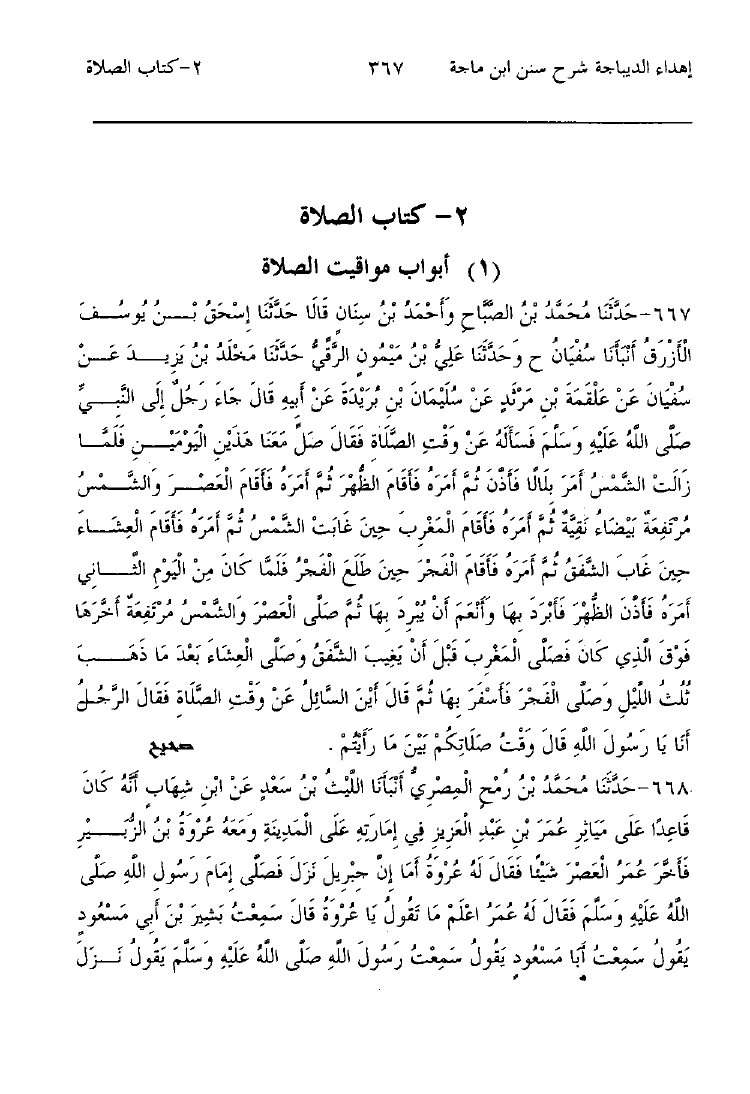 إهداء الديباجة شرح سنن ابن ماجة ٣٦٧ ٢-كتاب الصلاة
٢- كتاب الصلاة
(١) أبواب مواقيت الصلاة
٦٦٧-حَدَّثَنَا مُحَمَّدُ بْنُ الصَّبَّاحِ وَأَحْمَدُ بْنُ سِنَانٍ قَالَا حَدَّثَنَا إِسْحَقُ بْنُ يُوسُفَ
الْأَزْرَقُ أَنْبَأَنَا سُفْيَانُ ح وَحَدَّثَنَا عَلِيُّ بْنُ مَيْمُونٍ الرَّقِّيُّ حَدَّثَنَا مَخْلَدُ بْنُ يَزِيدَ عَنْ
سُفْيَانَ عَنْ عَلْقَمَةَ بْنِ مَرْثَدٍ عَنْ سُلَيْمَانَ بْنِ بُرَيْدَةَ عَنْ أَبِيهِ قَالَ جَاءَ رَجُلٌ إِلَى النَّبِيِّ
صَلَّى اللهُ عَلَيْهِ وَسَلَّمَ فَسَأَلَهُ عَنْ وَقْتِ الصَّلَاةِ فَقَالَ صَلِّ مَعَنَا هَذَيْنِ الْيَوْمَيْنِ فَلَمَّا
زَالَتْ الشَّمْسُ أَمَرَ بِلَالًا فَأَذَّنَ ثُمَّ أَمَرَهُ فَأَقَامَ الظُّهْرَ ثُمَّ أَمَرَهُ فَأَقَامَ الْعَصْرَ وَالشَّمْسُ
مُرْتَفِعَةٌ بَيْضَاءُ نَقِيَّةٌ ثُمَّ أَمَرَهُ فَأَقَامَ الْمَغْرِبَ حِينَ غَابَتْ الشَّمْسُ ثُمَّ أَمَرَهُ فَأَقَامَ الْعِشَاءَ
حِينَ غَابَ الشَّفَقُ ثُمَّ أَمَرَهُ فَأَقَامَ الْفَجْرَ حِينَ طَلَعَ الْفَجْرُ فَلَمَّا كَانَ مِنْ الْيَوْمِ الثَّانِي
أَمَرَهُ فَأَذَّنَ الظُّهْرَ فَأَبْرَدَ بِهَا وَأَنْعَمَ أَنْ يُبْرِدَ بِهَا ثُمَّ صَلَّى الْعَصْرَ وَالشَّمْسُ مُرْتَفِعَةٌ أَخَّرَهَا
فَوْقَ الَّذِي كَانَ فَصَلَّى الْمَغْرِبَ قَبْلَ أَنْ يَغِيبَ الشَّفَقُ وَصَلَّى الْعِشَاءَ بَعْدَ مَا ذَهَبَ
ثُلُثُ اللَّيْلِ وَصَلَّى الْفَجْرَ فَأَسْفَرَ بِهَا ثُمَّ قَالَ أَيْنَ السَّائِلُ عَنْ وَقْتِ الصَّلَاةِ فَقَالَ الرَّجُلُ
أَنَا يَا رَسُولَ اللَّهِ قَالَ وَقْتُ صَلَاتِكُمْ بَيْنَ مَا رَأَيْتُمْ . صحيح
٦٦٨-حَدَّثَنَا مُحَمَّدُ بْنُ رُمْحٍ الْمِصْرِيُّ أَنْبَأَنَا اللَّيْثُ بْنُ سَعْدٍ عَنْ ابْنِ شِهَابٍ أَنَّهُ كَانَ
قَاعِدًا عَلَى مَيَاثِرِ عُمَرَ بْنِ عَبْدِ الْعَزِيزِ فِي إِمَارَتِهِ عَلَى الْمَدِينَةِ وَمَعَهُ عُرْوَةُ بْنُ الزُّبَيْرِ
فَأَخَّرَ عُمَرُ الْعَصْرَ شَيْئًا فَقَالَ لَهُ عُرْوَةُ أَمَا إِنَّ جِبْرِيلَ نَزَلَ فَصَلَّى إِمَامَ رَسُولِ اللهِ صَلَّى
اللهُ عَلَيْهِ وَسَلَّمَ فَقَالَ لَهُ عُمَرُ اعْلَمْ مَا تَقُولُ يَا عُرْوَةُ قَالَ سَمِعْتُ بَشِيرَ بْنَ أَبِي مَسْعُودٍ
يَقُولُ سَمِعْتُ أَبَا مَسْعُودٍ يَقُولُ سَمِعْتُ رَسُولَ اللهِ صَلَّى اللهُ عَلَيْهِ وَسَلَّمَ يَقُولُ نَزَلَ